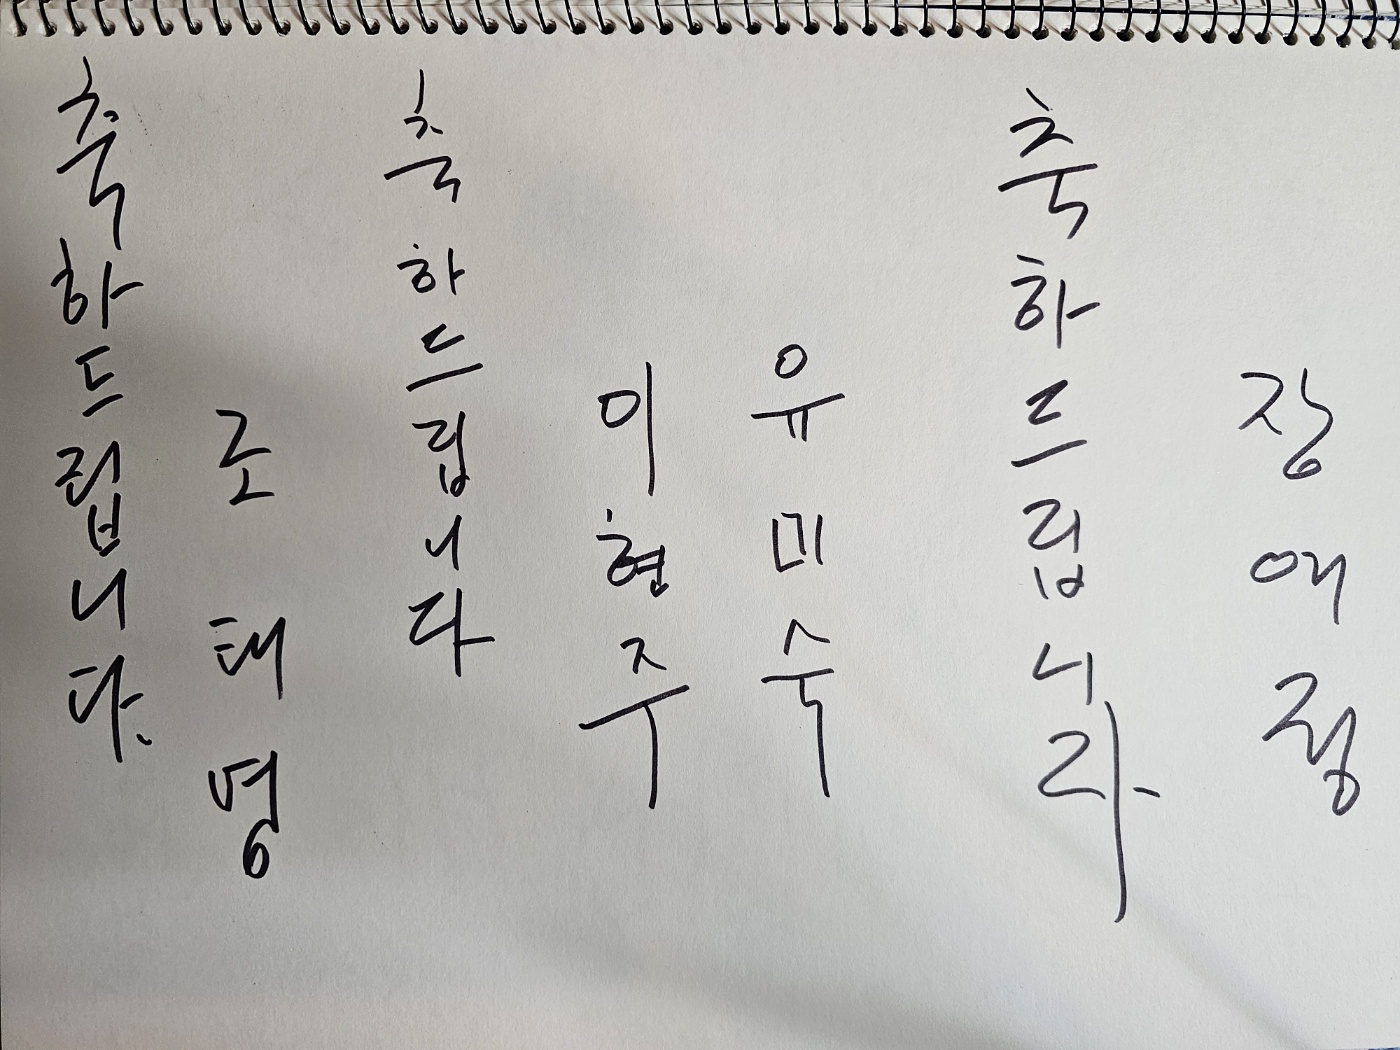 축하드립니다.
조태명
축하드립니다
이현주
유미숙
축하드립니다
장애령